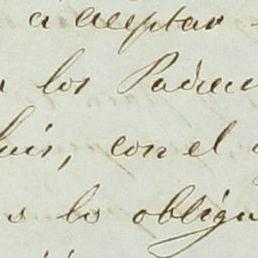 a aceptar
los Padres
Luis, con el
lo obligu